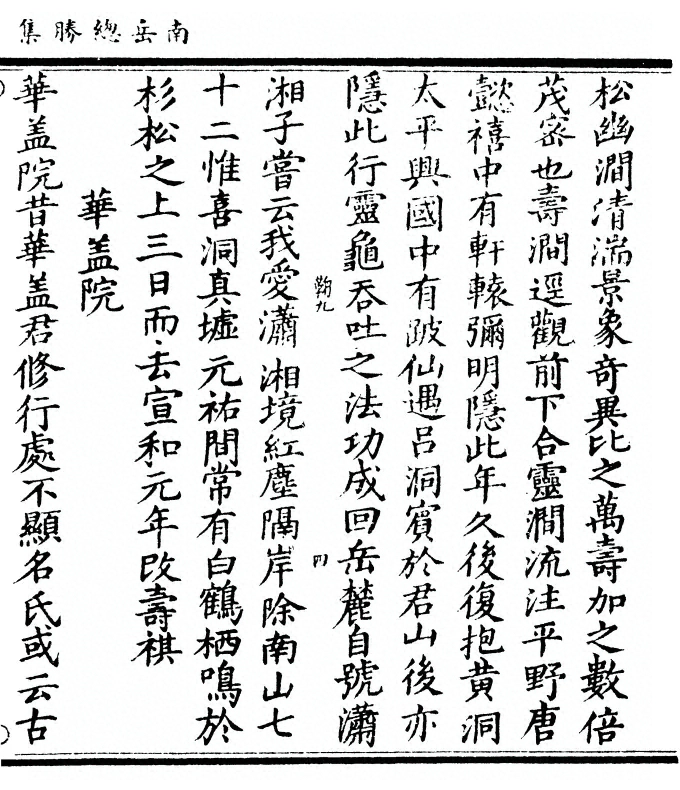 南岳總勝集
松幽澗清湍景象奇異比之萬壽加之數倍
茂密也壽澗逕觀前下合靈澗流注平野唐
懿禧中有軒轅彌明隱此年久後復抱黃洞
太平興國中有跛仙遇呂洞賓於君山後亦
隱此行靈龜吞吐之法功成回岳麓自號瀟
鞠九
四
湘子嘗云我愛瀟湘境紅塵隔岸除南山七
十二惟喜洞真墟元祐間常有白鶴栖鳴於
杉松之上三日而去宣和元年改壽祺
華盖院
華盖院昔華盖君修行處不顯名氏或云古